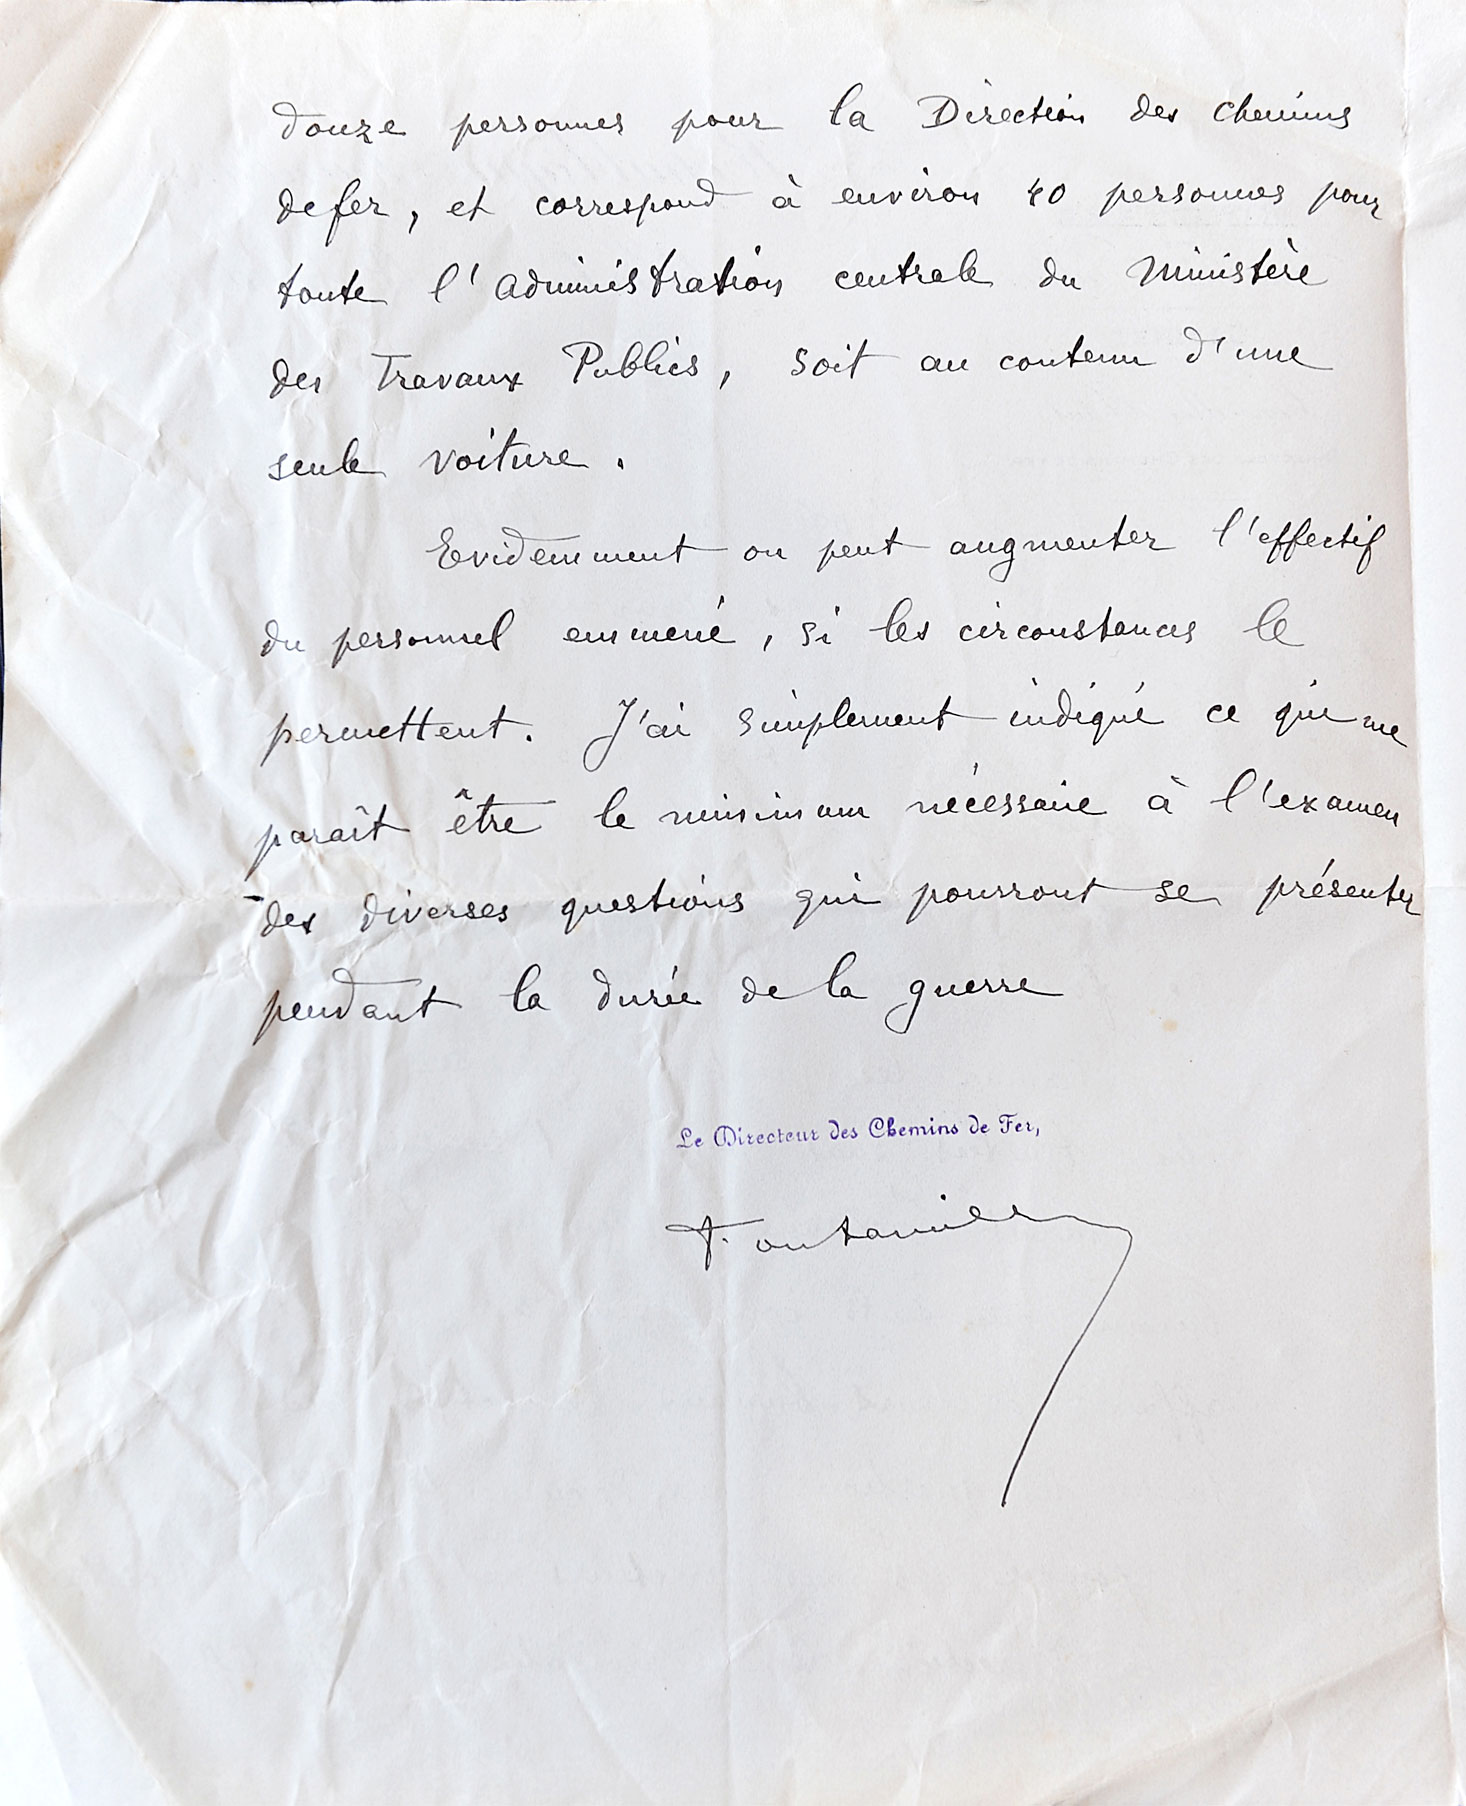 douze personnes pour la Direction des chemins
de fer, et correspond à environ 40 personnes pour
toute l'administration centrale du Ministère
des Travaux Publics, soit au contenu d'une
seule voiture.
Evidemment on peut augmenter l'effectif
du personnel emmené, si les circonstances le
permettent. J'ai simplement indiqué ce qui me
paraît être le minimum nécessaire à l'examen
des diverses questions qui pourront se présenter
pendant la durée de la guerre
Le Directeur des Chemins de Fer,